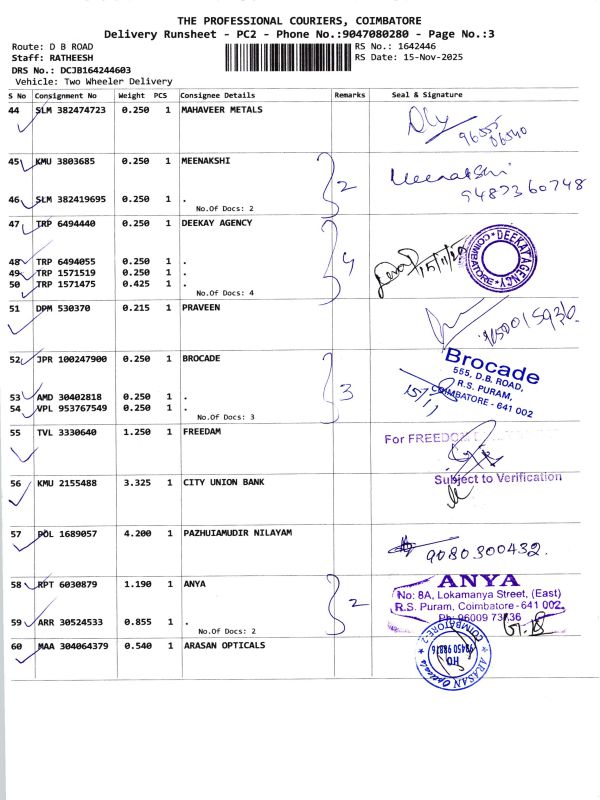 THE PROFESSIONAL COURIERS, COIMBATORE
Delivery Runsheet - PC2 - Phone No.:9047080280 - Page No.:3
Route: D B ROAD RS No.: 1642446
Staff: RATHEESH RS Date: 15-Nov-2025
DRS No.: DCJB164244603
Vehicle: Two Wheeler Delivery
S No Consignment No Weight PCS Consignee Details Remarks Seal & Signature
44 SLM 382474723 0.250 1 MAHAVEER METALS
45 KMU 3803685 0.250 1 MEENAKSHI 2 Meenakshi
9487360748
46 SLM 382419695 0.250 1 .
No.Of Docs: 2
47 TRP 6494440 0.250 1 DEEKAY AGENCY 4 DEEKAY AGENCY COIMBATORE
48 TRP 6494055 0.250 1 .
49 TRP 1571519 0.250 1 .
50 TRP 1571475 0.425 1 .
No.Of Docs: 4
51 DPM 530370 0.215 1 PRAVEEN
52 JPR 100247900 0.250 1 BROCADE 3 Brocade
555, D.B. ROAD,
R.S. PURAM,
COIMBATORE - 641 002
15/11
53 AMD 30402818 0.250 1 .
54 VPL 953767549 0.250 1 .
No.Of Docs: 3
55 TVL 3330640 1.250 1 FREEDAM For FREEDOM
Subject to Verification
56 KMU 2155488 3.325 1 CITY UNION BANK
57 POL 1689057 4.200 1 PAZHUIAMUDIR NILAYAM 9080300432.
58 RPT 6030879 1.190 1 ANYA 2 ANYA
No: 8A, Lokamanya Street, (East)
R.S. Puram, Coimbatore - 641 002.
59 ARR 30524533 0.855 1 .
No.Of Docs: 2
60 MAA 304064379 0.540 1 ARASAN OPTICALS ARASAN Opticals COIMBATORE-2
HO